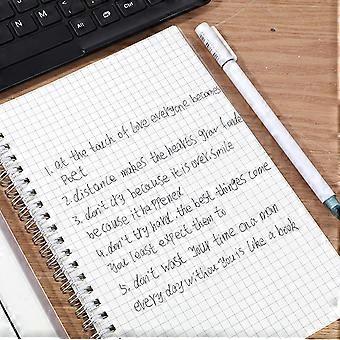 1. at the touch of love everyone becomes
Poet
2. distance makes the hearts grow fonder
3. don't cry because it is over smile
because it happened
4. don't try hard the best things come
You least expect them to
5. don't wast Your time on a man
every day without You is like a book